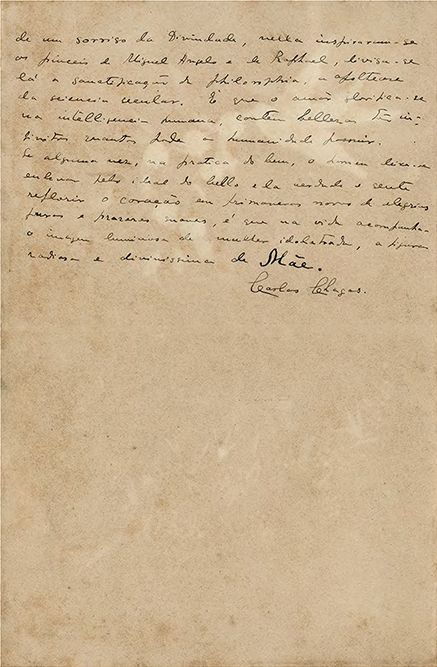 de um sorriso da Divindade, nella inspiraram-se
os pinceis de Miguel Angelo e de Raphael, divisa-se
lá a sanctificação da philosophia, a apotheose
da sciencia secular. É que o amor glorifica-se
na intelligencia humana, contém bellezas tão in-
finitas quantas pode a humanidade possuir.
Se alguma vez, na pratica do bem, o homem deixa-se
enlevar pelo ideal do bello e da verdade e sente
reflorir o coração em primaveras novas de alegrias
puras e prazeres suaves, é que na vida acompanha-
o imagem luminosa de mulher idolatrada, a figura
radiosa e diviníssima de Mãe.
Carlos Chagas.